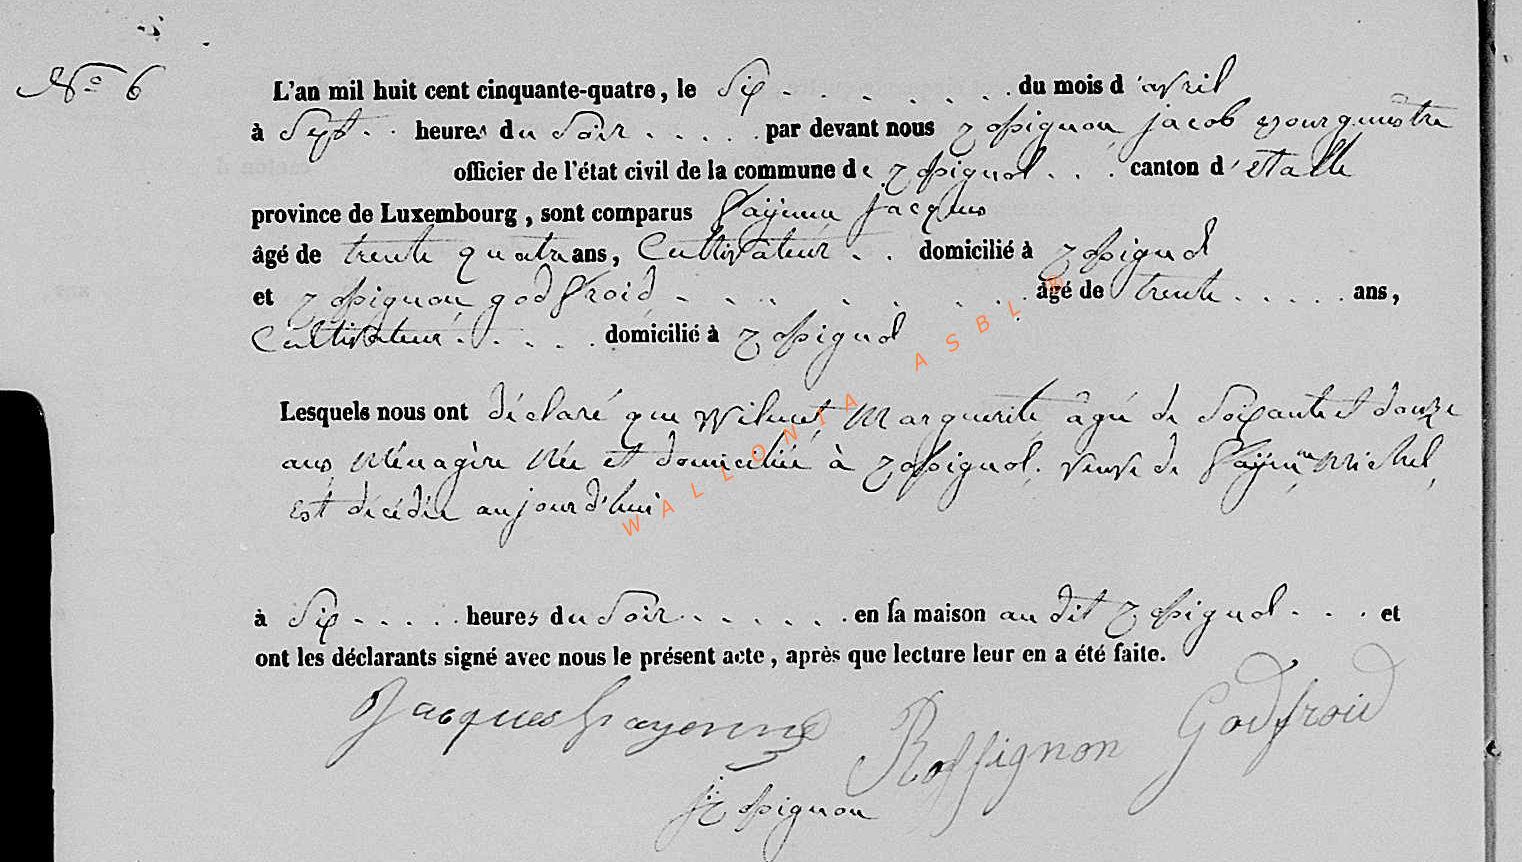 N° 6
L'an mil huit cent cinquante-quatre, le Six du mois d'avril
à Sept heures du Soir par devant nous Rossignon jacob Bourguêstre
officier de l'état civil de la commune de Rossignol canton d'étalle
province de Luxembourg, sont comparus jacques
âgé de trente quatre ans, Cultivateur domicilié à Rossignol
et Rossignon godfroid âgé de trente ans,
Cultivateur domicilié à Rossignol
Lesquels nous ont déclaré que Wilmet Marguerite âgée de Soixante et douze
ans Ménagère Née et domiciliée à Rossignol, veuve de Michel,
est décédée aujourd'hui
à Six heures du Soir en sa maison au dit Rossignol et
ont les déclarants signé avec nous le présent acte, après que lecture leur en a été faite.
Jacques Rossignon Godfroid
jRossignon
WALLONIA ASBL